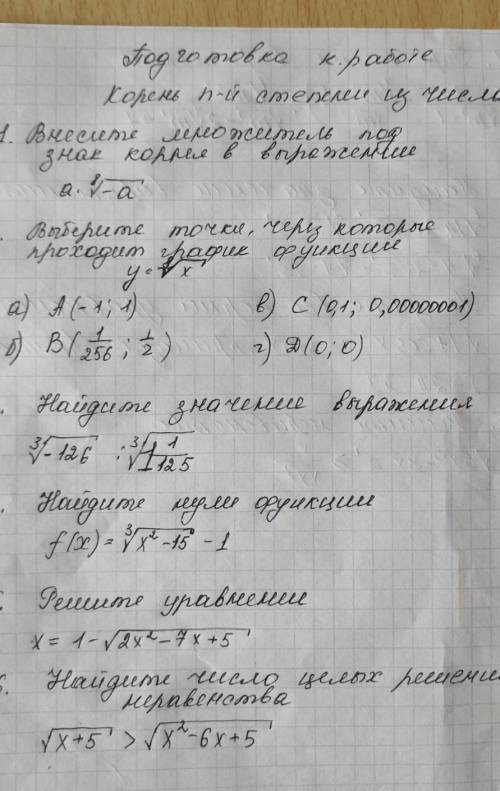 Подготовка к. работе
Корень n-й степени из числа
1. Внесите множитель под
знак корня в выражении
a · ⁸√-a
. Выберите точки, через которые
проходит график функции
y = ⁸√x
а) A(-1; 1)
в) C(0,1; 0,00000001)
б) B(1/256; 1/2)
г) D(0; 0)
. Найдите значение выражения
³√-126 : ³√1 1/125
. Найдите нули функции
f(x) = ³√x² - 15 - 1
Решите уравнение
x = 1 - √2x² - 7x + 5
6. Найдите число целых решени
неравенства
√x + 5 > √x² - 6x + 5